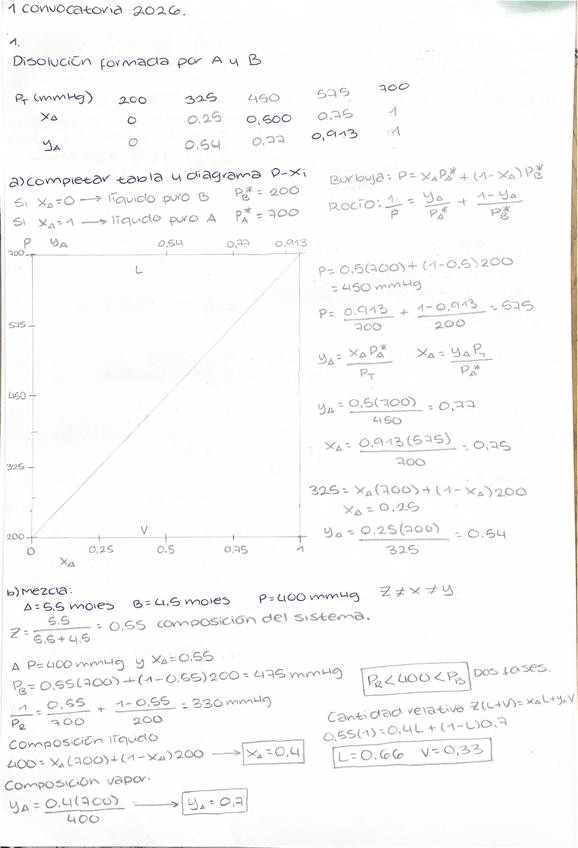 1 convocatoria 2026.
1.
Disolución formada por A y B
PT (mmHg) 200 325 450 575 700
XA 0 0,25 0,500 0,75 1
yA 0 0.54 0,77 0,913 1
a) completar tabla y diagrama P-Xi
Si XA=0 → líquido puro B PB* = 200
Si XA=1 → líquido puro A PA* = 700
Burbuja: P = XA PA* + (1-XA) PB*
Rocío: 1/P = yA/PA* + (1-yA)/PB*
P yA 0,54 0,77 0.913
700
L
575
450
325
200
V
0 0,25 0,5 0,75 1
XA
P = 0,5(700) + (1-0,5)200
= 450 mmHg
P = 0.913/700 + (1-0,913)/200 = 575
yA = XA PA*/PT XA = yA PT/PA*
yA = 0,5(700)/450 = 0,77
XA = 0.913(575)/700 = 0,75
325 = XA(700) + (1-XA)200
XA = 0,25
yA = 0.25(700)/325 = 0.54
b) Mezcla:
A = 5.5 moles B = 4.5 moles P = 400 mmHg Z ≠ x ≠ y
Z = 5.5/(5.5+4.5) = 0.55 composición del sistema.
A P = 400 mmHg y XA = 0.55
PB = 0.55(700) + (1-0.55)200 = 475 mmHg
PR < 400 < PB Dos fases.
1/PR = 0,55/700 + (1-0.55)/200 = 330 mmHg
Composición líquido
400 = XA(700) + (1-XA)200 → XA = 0,4
Composición vapor:
yA = 0.4(700)/400 → yA = 0,7
Cantidad relativa Z(L+V) = XA L + yA V
0,55(1) = 0.4L + (1-L)0.7
L = 0.66 V = 0,33